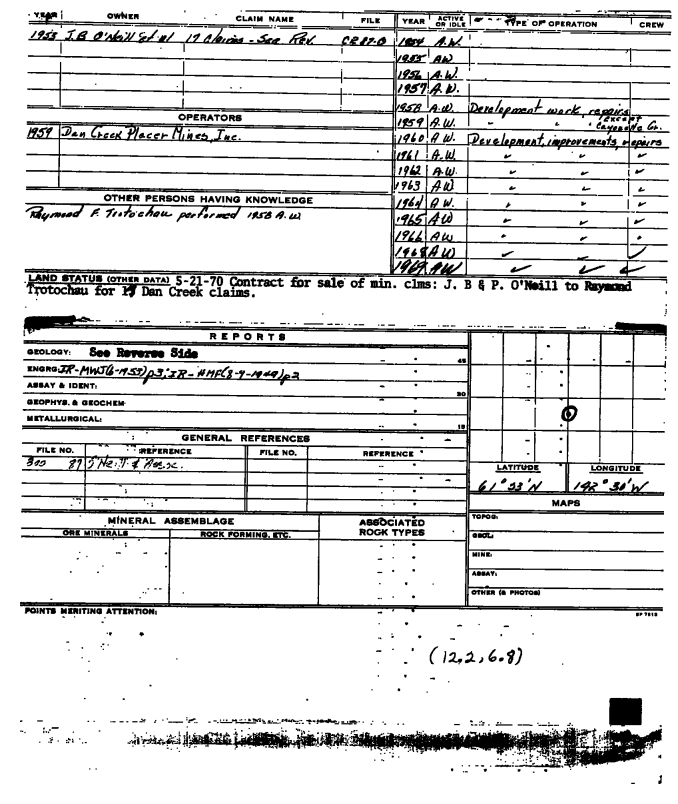 YEAR OWNER CLAIM NAME FILE YEAR ACTIVE OR IDLE TYPE OF OPERATION CREW
1953 J.B O'Neill et al 17 Claims - See Rev. 1954 A.W.
1955 AW
1956 A.W.
1957 A.W.
1958 A.W. Development work, repairs
OPERATORS 1959 A.W. " " " (except
1959 Dan Creek Placer Mines, Inc. 1960 A W. Development, improvements, repairs
1961 A.W. ✓ ✓ ✓
1962 A.W. ✓ ✓ ✓
1963 A.W. ✓ ✓
OTHER PERSONS HAVING KNOWLEDGE 1964 A W. ✓ ✓
Raymond F. Trotochau performed 1958 A.W. 1965 AW ✓ ✓ ✓
1966 AW
1968 AW ✓ ✓ ✓
1969 AW ✓ ✓ ✓
LAND STATUS (OTHER DATA) 5-21-70 Contract for sale of min. clms: J. B & P. O'Neill to Raymond
Trotochau for 17 Dan Creek claims.
REPORTS
GEOLOGY: See Reverse Side
ENGRG: IR-MWJ(6-1957)p3; IR-HMF(8-9-1949)p2
ASSAY & IDENT:
GEOPHYS. & GEOCHEM:
METALLURGICAL:
GENERAL REFERENCES
FILE NO. REFERENCE FILE NO. REFERENCE
300 87
LATITUDE LONGITUDE
61° 142° 30'W
MAPS
MINERAL ASSEMBLAGE ASSOCIATED ROCK TYPES
ORE MINERALS ROCK FORMING, ETC.
TOPOG:
GEOL:
MINE:
ASSAY:
OTHER (& PHOTOS)
POINTS MERITING ATTENTION:
(12,2,6.8)